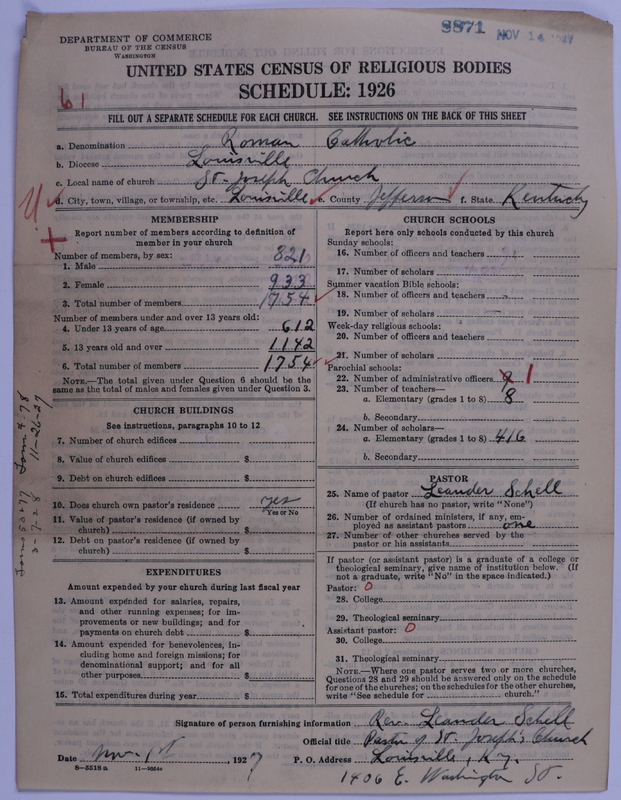 3871 NOV 14 1927
DEPARTMENT OF COMMERCE
BUREAU OF THE CENSUS
WASHINGTON
UNITED STATES CENSUS OF RELIGIOUS BODIES
SCHEDULE: 1926
61
FILL OUT A SEPARATE SCHEDULE FOR EACH CHURCH. SEE INSTRUCTIONS ON THE BACK OF THIS SHEET
a. Denomination Roman Catholic
b. Diocese Louisville
c. Local name of church St. Joseph Church
d. City, town, village, or township, etc. Louisville e. County Jefferson f. State Kentucky
MEMBERSHIP
Report number of members according to definition of
member in your church
Number of members, by sex:
1. Male 821
2. Female 933
3. Total number of members 1754
Number of members under and over 13 years old:
4. Under 13 years of age 612
5. 13 years old and over 1142
6. Total number of members 1754
NOTE.—The total given under Question 6 should be
same as the total of males and females given under Question 3.
CHURCH BUILDINGS
See instructions, paragraphs 10 to 12
7. Number of church edifices
8. Value of church edifices $
9. Debt on church edifices $
10. Does church own pastor's residence yes
Yes or No
11. Value of pastor's residence (if owned by
church) $
12. Debt on pastor's residence (if owned by
church) $
EXPENDITURES
Amount expended by your church during last fiscal year
13. Amount expended for salaries, repairs,
and other running expenses; for im-
provements or new buildings; and for
payments on church debt $
14. Amount expended for benevolences, in-
cluding home and foreign missions; for
denominational support; and for all
other purposes $
15. Total expenditures during year $
CHURCH SCHOOLS
Report here only schools conducted by this church
Sunday schools:
16. Number of officers and teachers
17. Number of scholars
Summer vacation Bible schools:
18. Number of officers and teachers
19. Number of scholars
Week-day religious schools:
20. Number of officers and teachers
21. Number of scholars
Parochial schools:
22. Number of administrative officers 1
23. Number of teachers—
a. Elementary (grades 1 to 8) 8
b. Secondary
24. Number of scholars—
a. Elementary (grades 1 to 8) 416
b. Secondary
PASTOR
25. Name of pastor Leander Schell
(If church has no pastor, write "None")
26. Number of ordained ministers, if any, em-
ployed as assistant pastors one
27. Number of other churches served by the
pastor or his assistants
If pastor (or assistant pastor) is a graduate of a college or
theological seminary, give name of institution below. (If
not a graduate, write "No" in the space indicated.)
Pastor: 0
28. College
29. Theological seminary
Assistant pastor: 0
30. College
31. Theological seminary
NOTE.—Where one pastor serves two or more churches,
Questions 28 and 29 should be answered only on the schedule
for one of the churches; on the schedules for the other churches,
write "See schedule for church."
Form 53+77 Form 4-78
3-7-28 11-26-27
Signature of person furnishing information Rev. Leander Schell
Official title Pastor of St. Joseph's Church
Date Nov. 1st, 1927 P. O. Address Louisville, Ky.
8—5518 a 11—9954a
1406 E. Washington St.